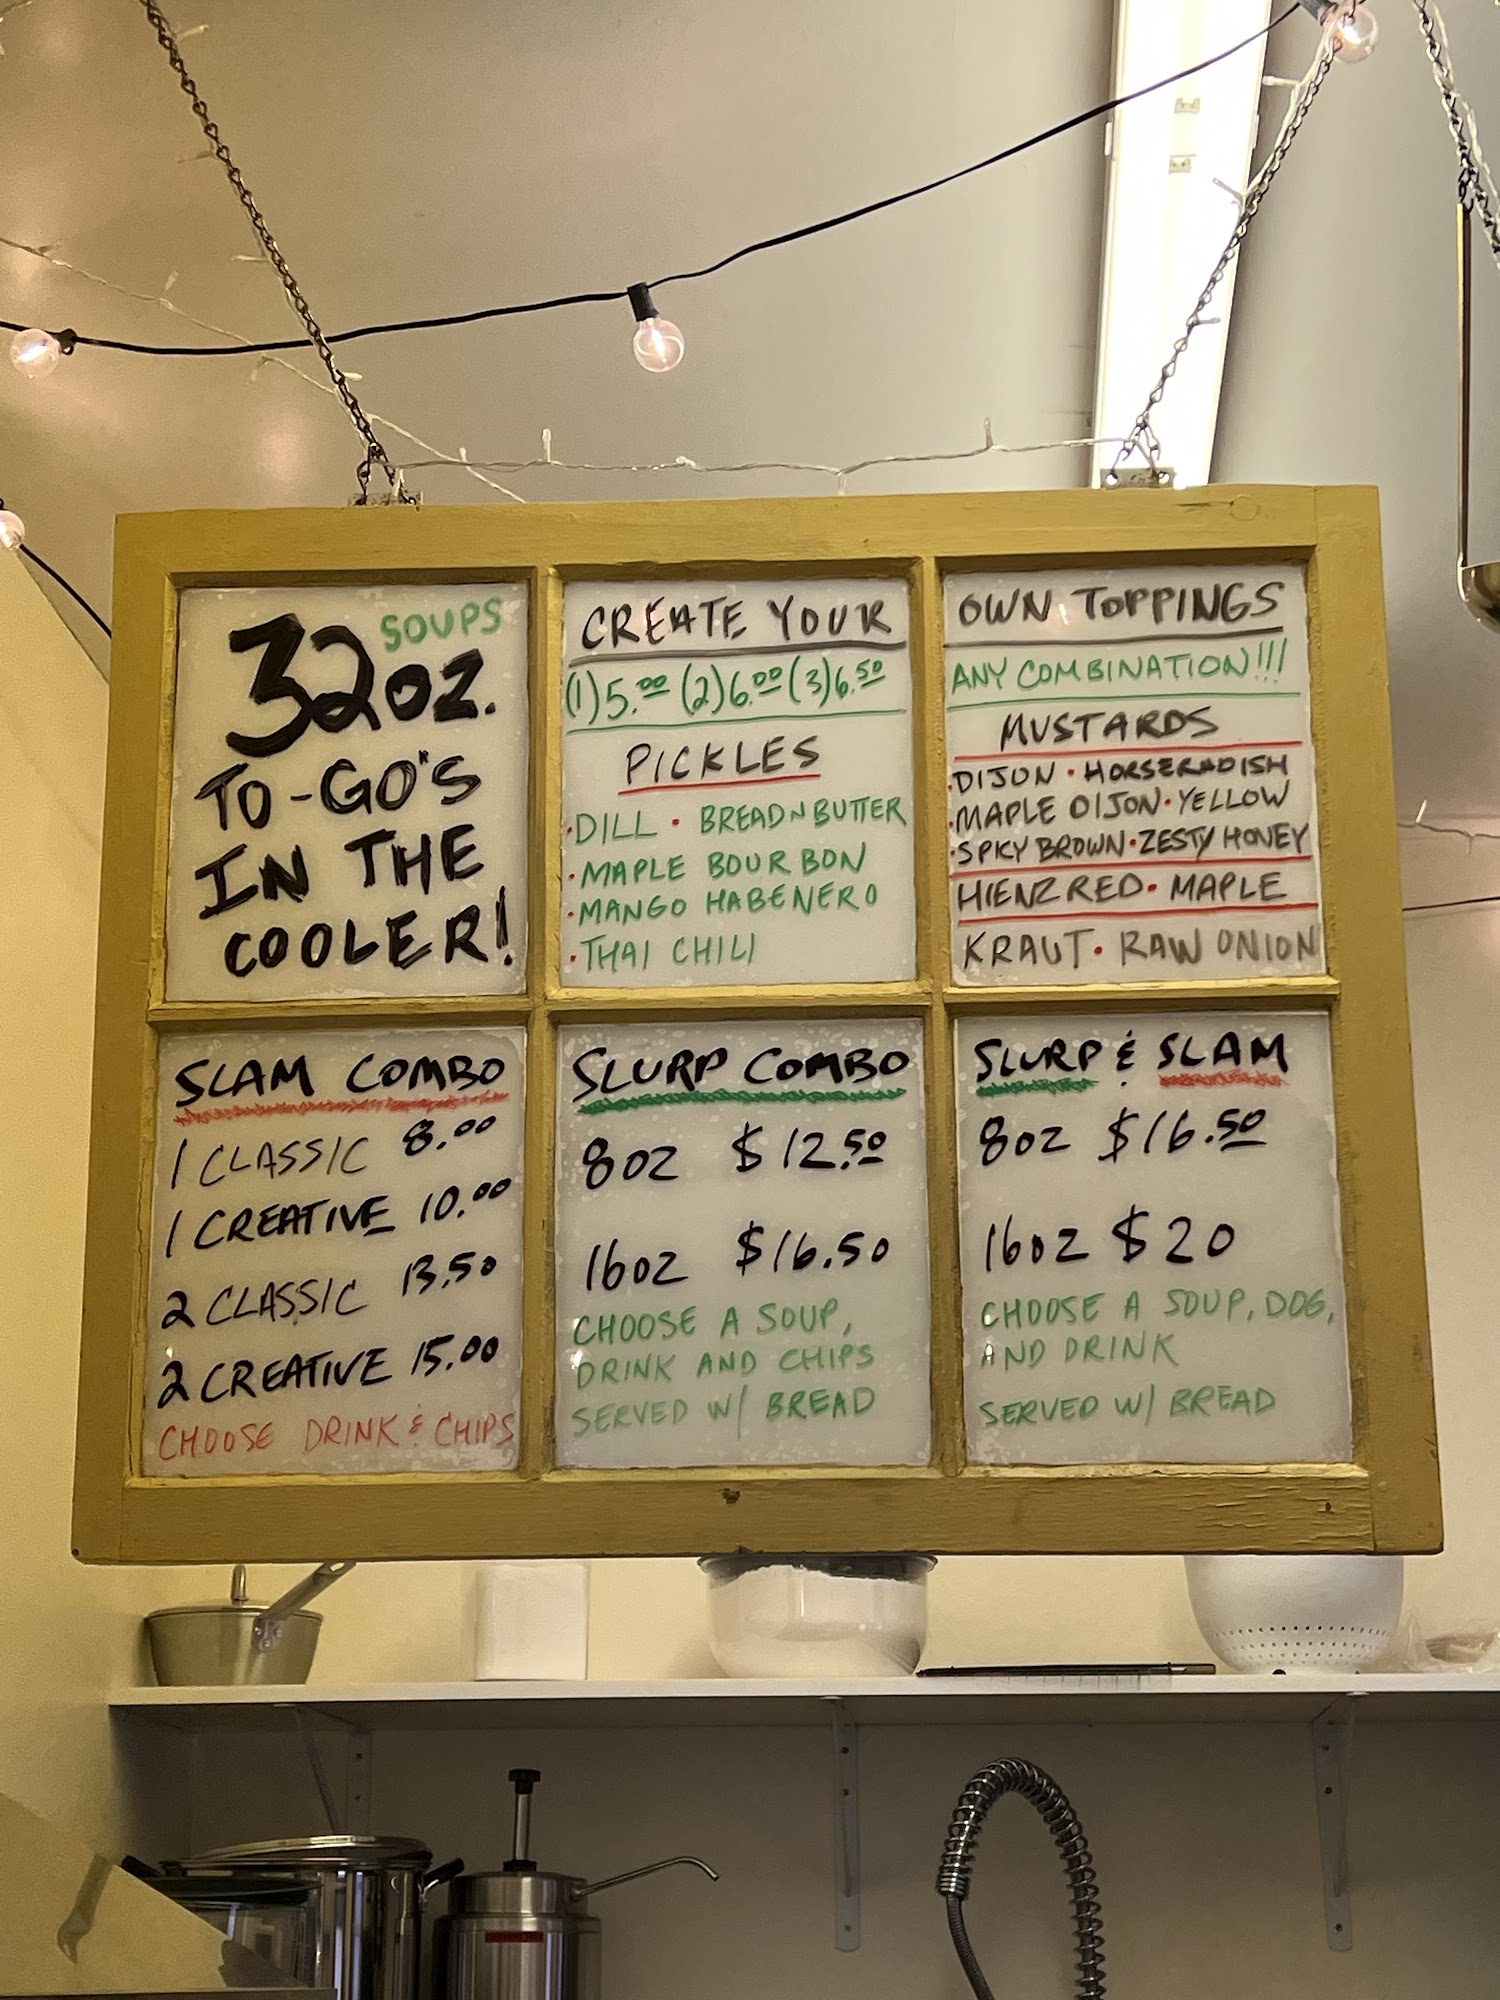 SOUPS
32oz.
TO-GO'S
IN THE
COOLER!
CREATE YOUR
(1) 5.00 (2) 6.00 (3) 6.50
PICKLES
·DILL · BREAD N BUTTER
·MAPLE BOURBON
·MANGO HABENERO
·THAI CHILI
OWN TOPPINGS
ANY COMBINATION!!!
MUSTARDS
·DIJON · HORSERADISH
·MAPLE DIJON · YELLOW
·SPICY BROWN · ZESTY HONEY
HIENZ RED · MAPLE
KRAUT · RAW ONION
SLAM COMBO
1 CLASSIC 8.00
1 CREATIVE 10.00
2 CLASSIC 13.50
2 CREATIVE 15.00
CHOOSE DRINK & CHIPS
SLURP COMBO
8oz $12.50
16oz $16.50
CHOOSE A SOUP,
DRINK AND CHIPS
SERVED W/ BREAD
SLURP & SLAM
8oz $16.50
16oz $20
CHOOSE A SOUP, DOG,
AND DRINK
SERVED W/ BREAD